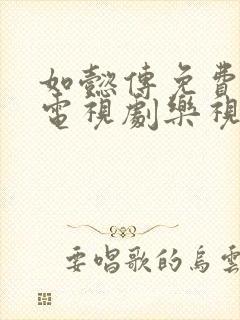 如懿傳免費
電視劇樂視
要唱歌的烏雲